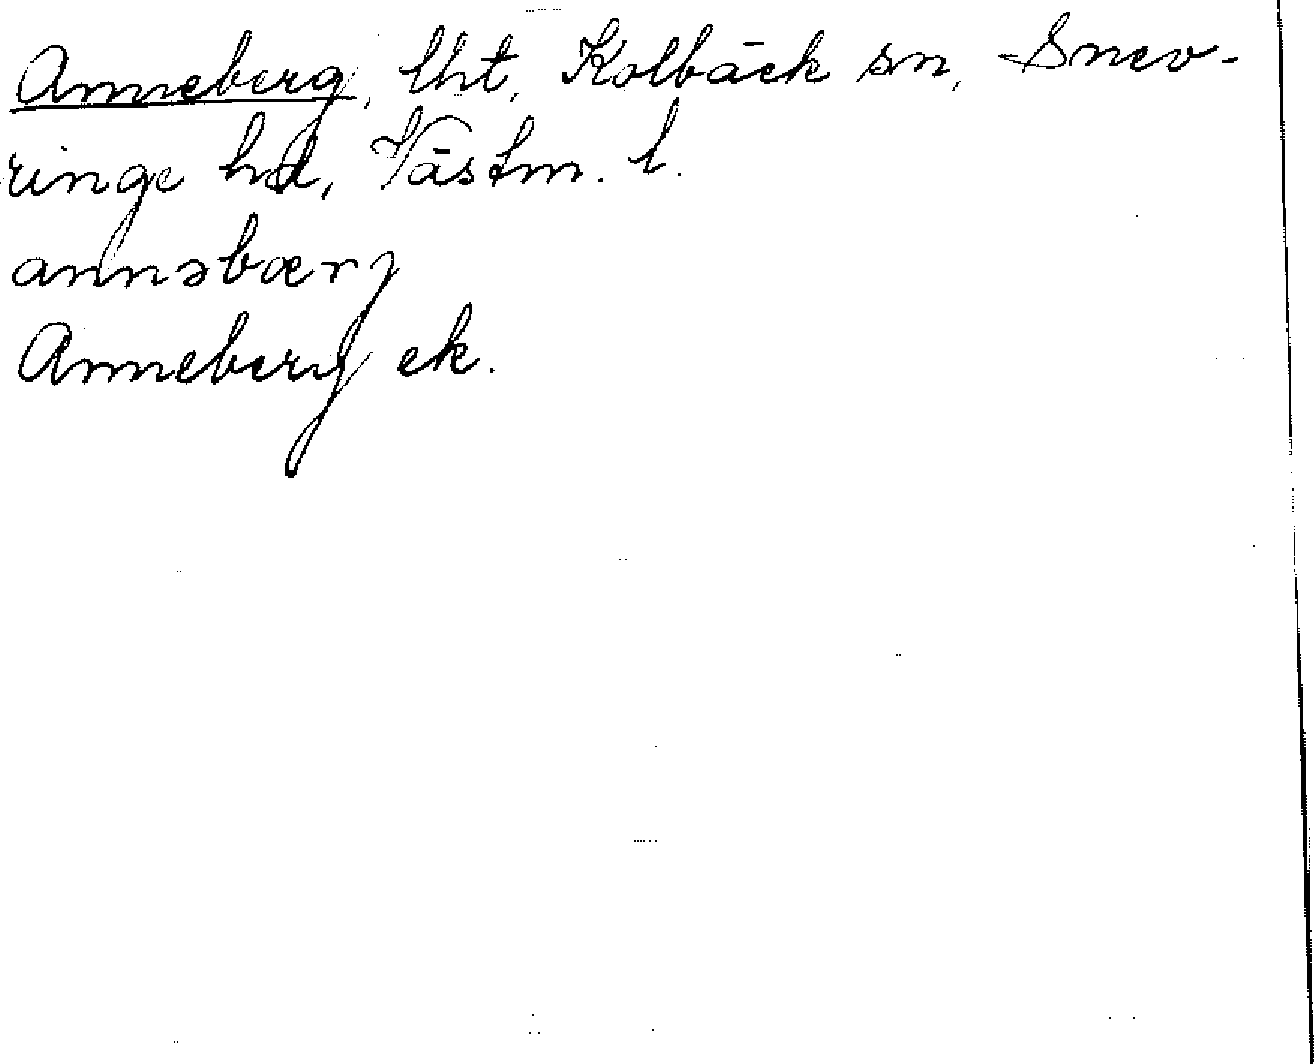 Anneberg, lht, Kolbäck sn, Snev-
ringe hd, Västm. l.
annəbærj
Anneberg ek.